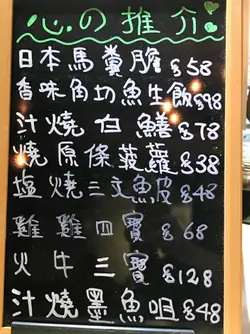 心の推介
日本馬糞膽 $58
香味角切魚生飯 $98
汁燒白鱔 $78
燒原條菠蘿 $38
塩燒三文魚皮 $48
雞雞四寶 $68
火牛三寶 $128
汁燒墨魚咀 $48